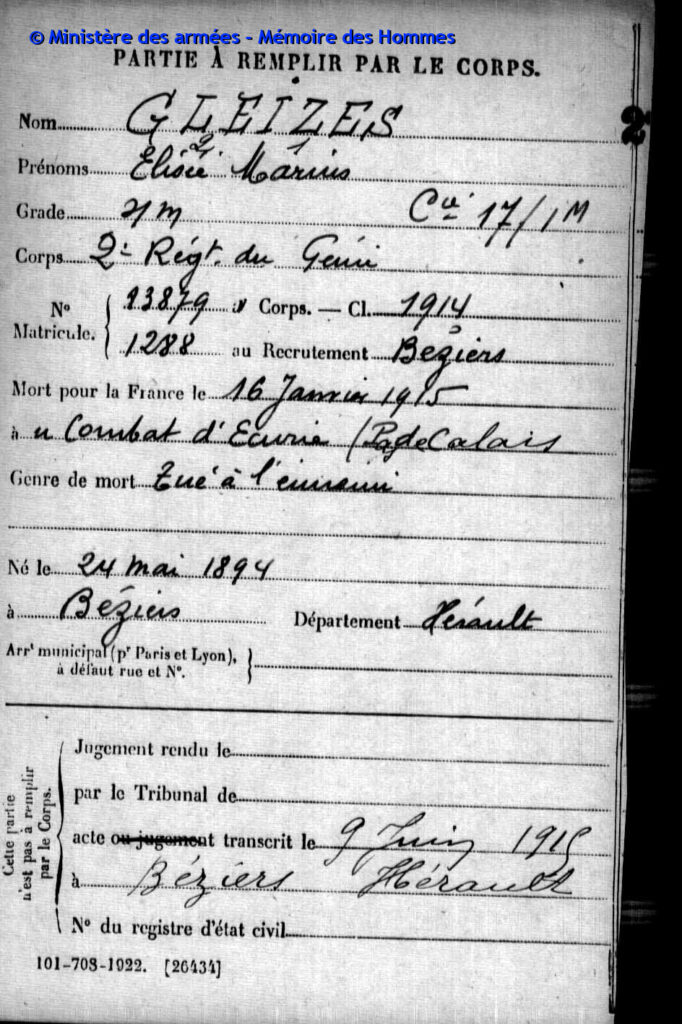 © Ministère des armées - Mémoire des Hommes
PARTIE À REMPLIR PAR LE CORPS.
Nom GLEIZES
2 1
Prénoms Elisée Marius
Grade Cie 17/1M
Corps 2e Régt. du Génie
No Matricule. { 23879 Corps. — Cl. 1914
1288 au Recrutement Béziers
Mort pour la France le 16 Janvier 1915
à u Combat d'Ecurie (Pas de Calais
Genre de mort Tué à l'ennemi
Né le 24 mai 1894
à Béziers Département Hérault
Arrt municipal (pr Paris et Lyon),
à défaut rue et No. }
Cette partie n'est pas à remplir par le Corps.
Jugement rendu le
par le Tribunal de
acte ou jugement transcrit le 9 Juin 1915
à Béziers Hérault
No du registre d'état civil
101-708-1922. [26434]